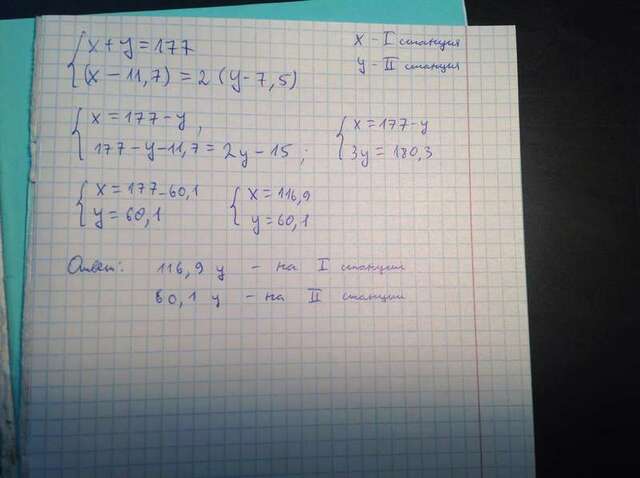 x + y = 177
x - I станция
(x - 11,7) = 2 (y - 7,5)
y - II станция
x = 177 - y,
177 - y - 11,7 = 2y - 15;
x = 177 - y
3y = 180,3
x = 177 - 60,1
y = 60,1
x = 116,9
y = 60,1
Ответ: 116,9 ц - на I станции
60,1 ц - на II станции